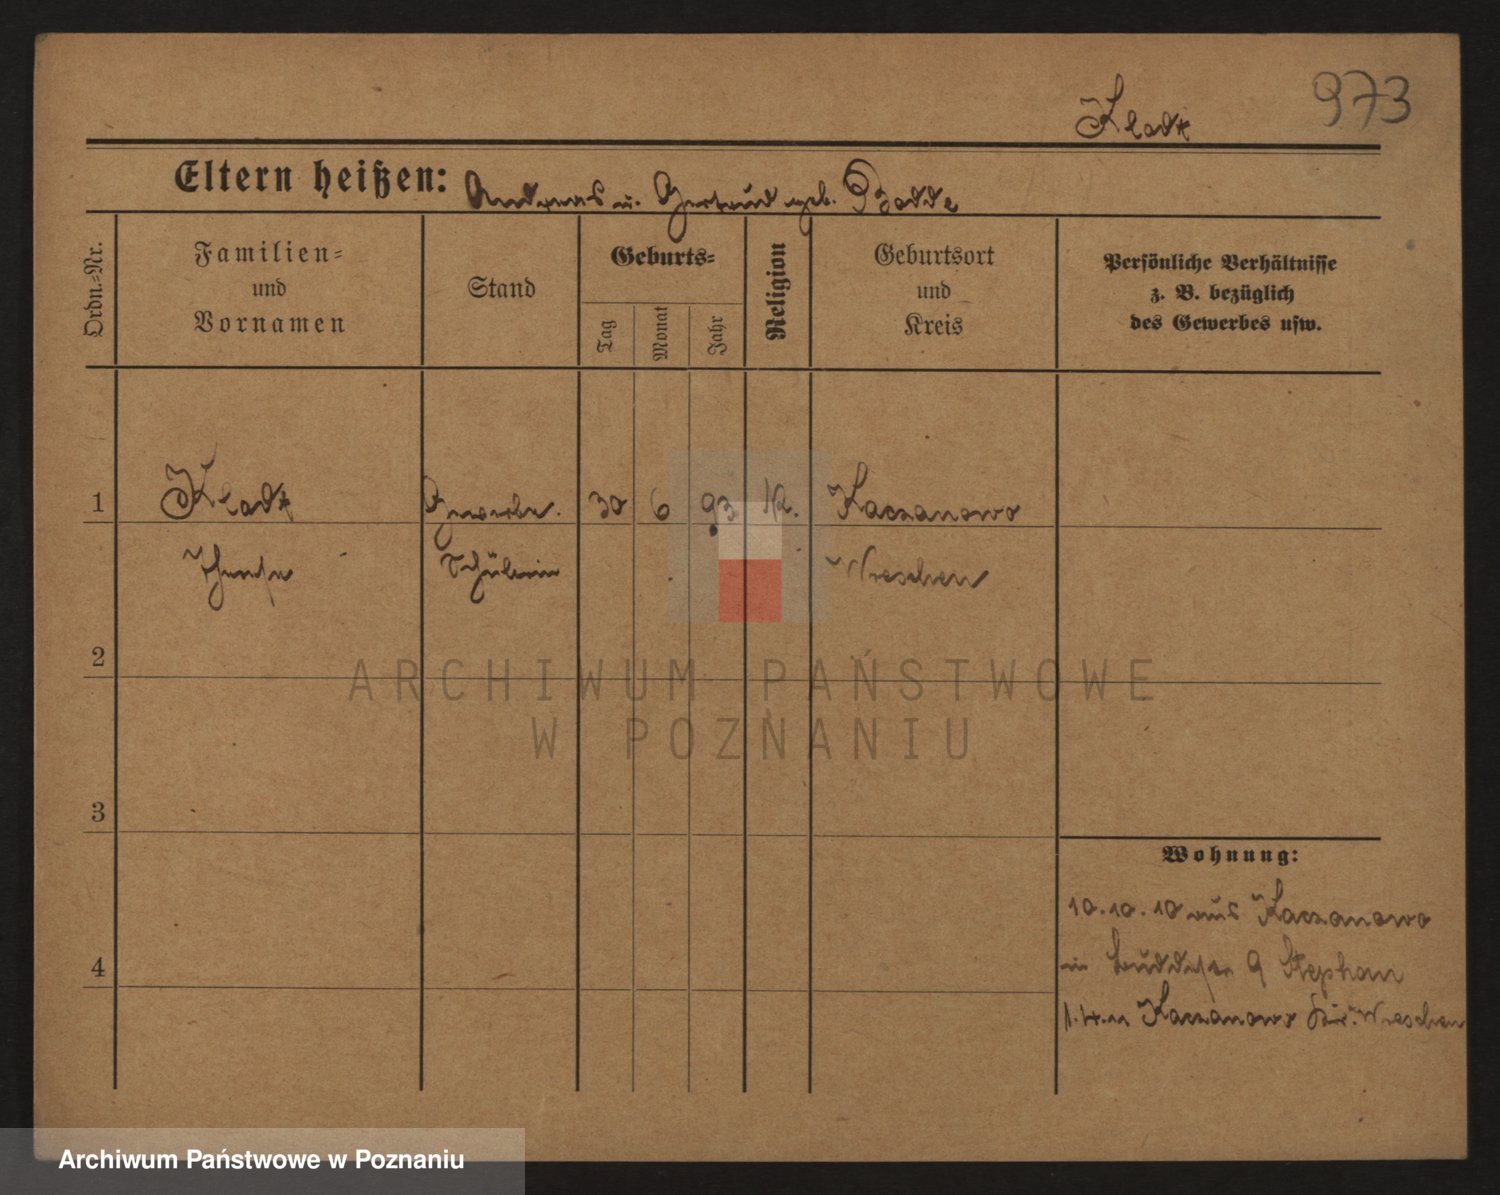 973
Kladt
Eltern heißen: Andreas u. Gertrud geb. Badde
Ordn.-Nr.
Familien- und Vornamen
Stand
Geburts-
Tag
Monat
Jahr
Religion
Geburtsort und Kreis
Persönliche Verhältnisse
z. B. bezüglich
des Gewerbes usw.
1 Kladt Gewerbe. 30 6 93 Kaczanowo
Therese Schülerin Wreschen
2
ARCHIWUM PAŃSTWOWE
W POZNANIU
3
Wohnung:
10.10.10 aus Kaczanowo
in 9 Stephan
4
1.4.11 Kaczanowo Kr. Wreschen
Archiwum Państwowe w Poznaniu